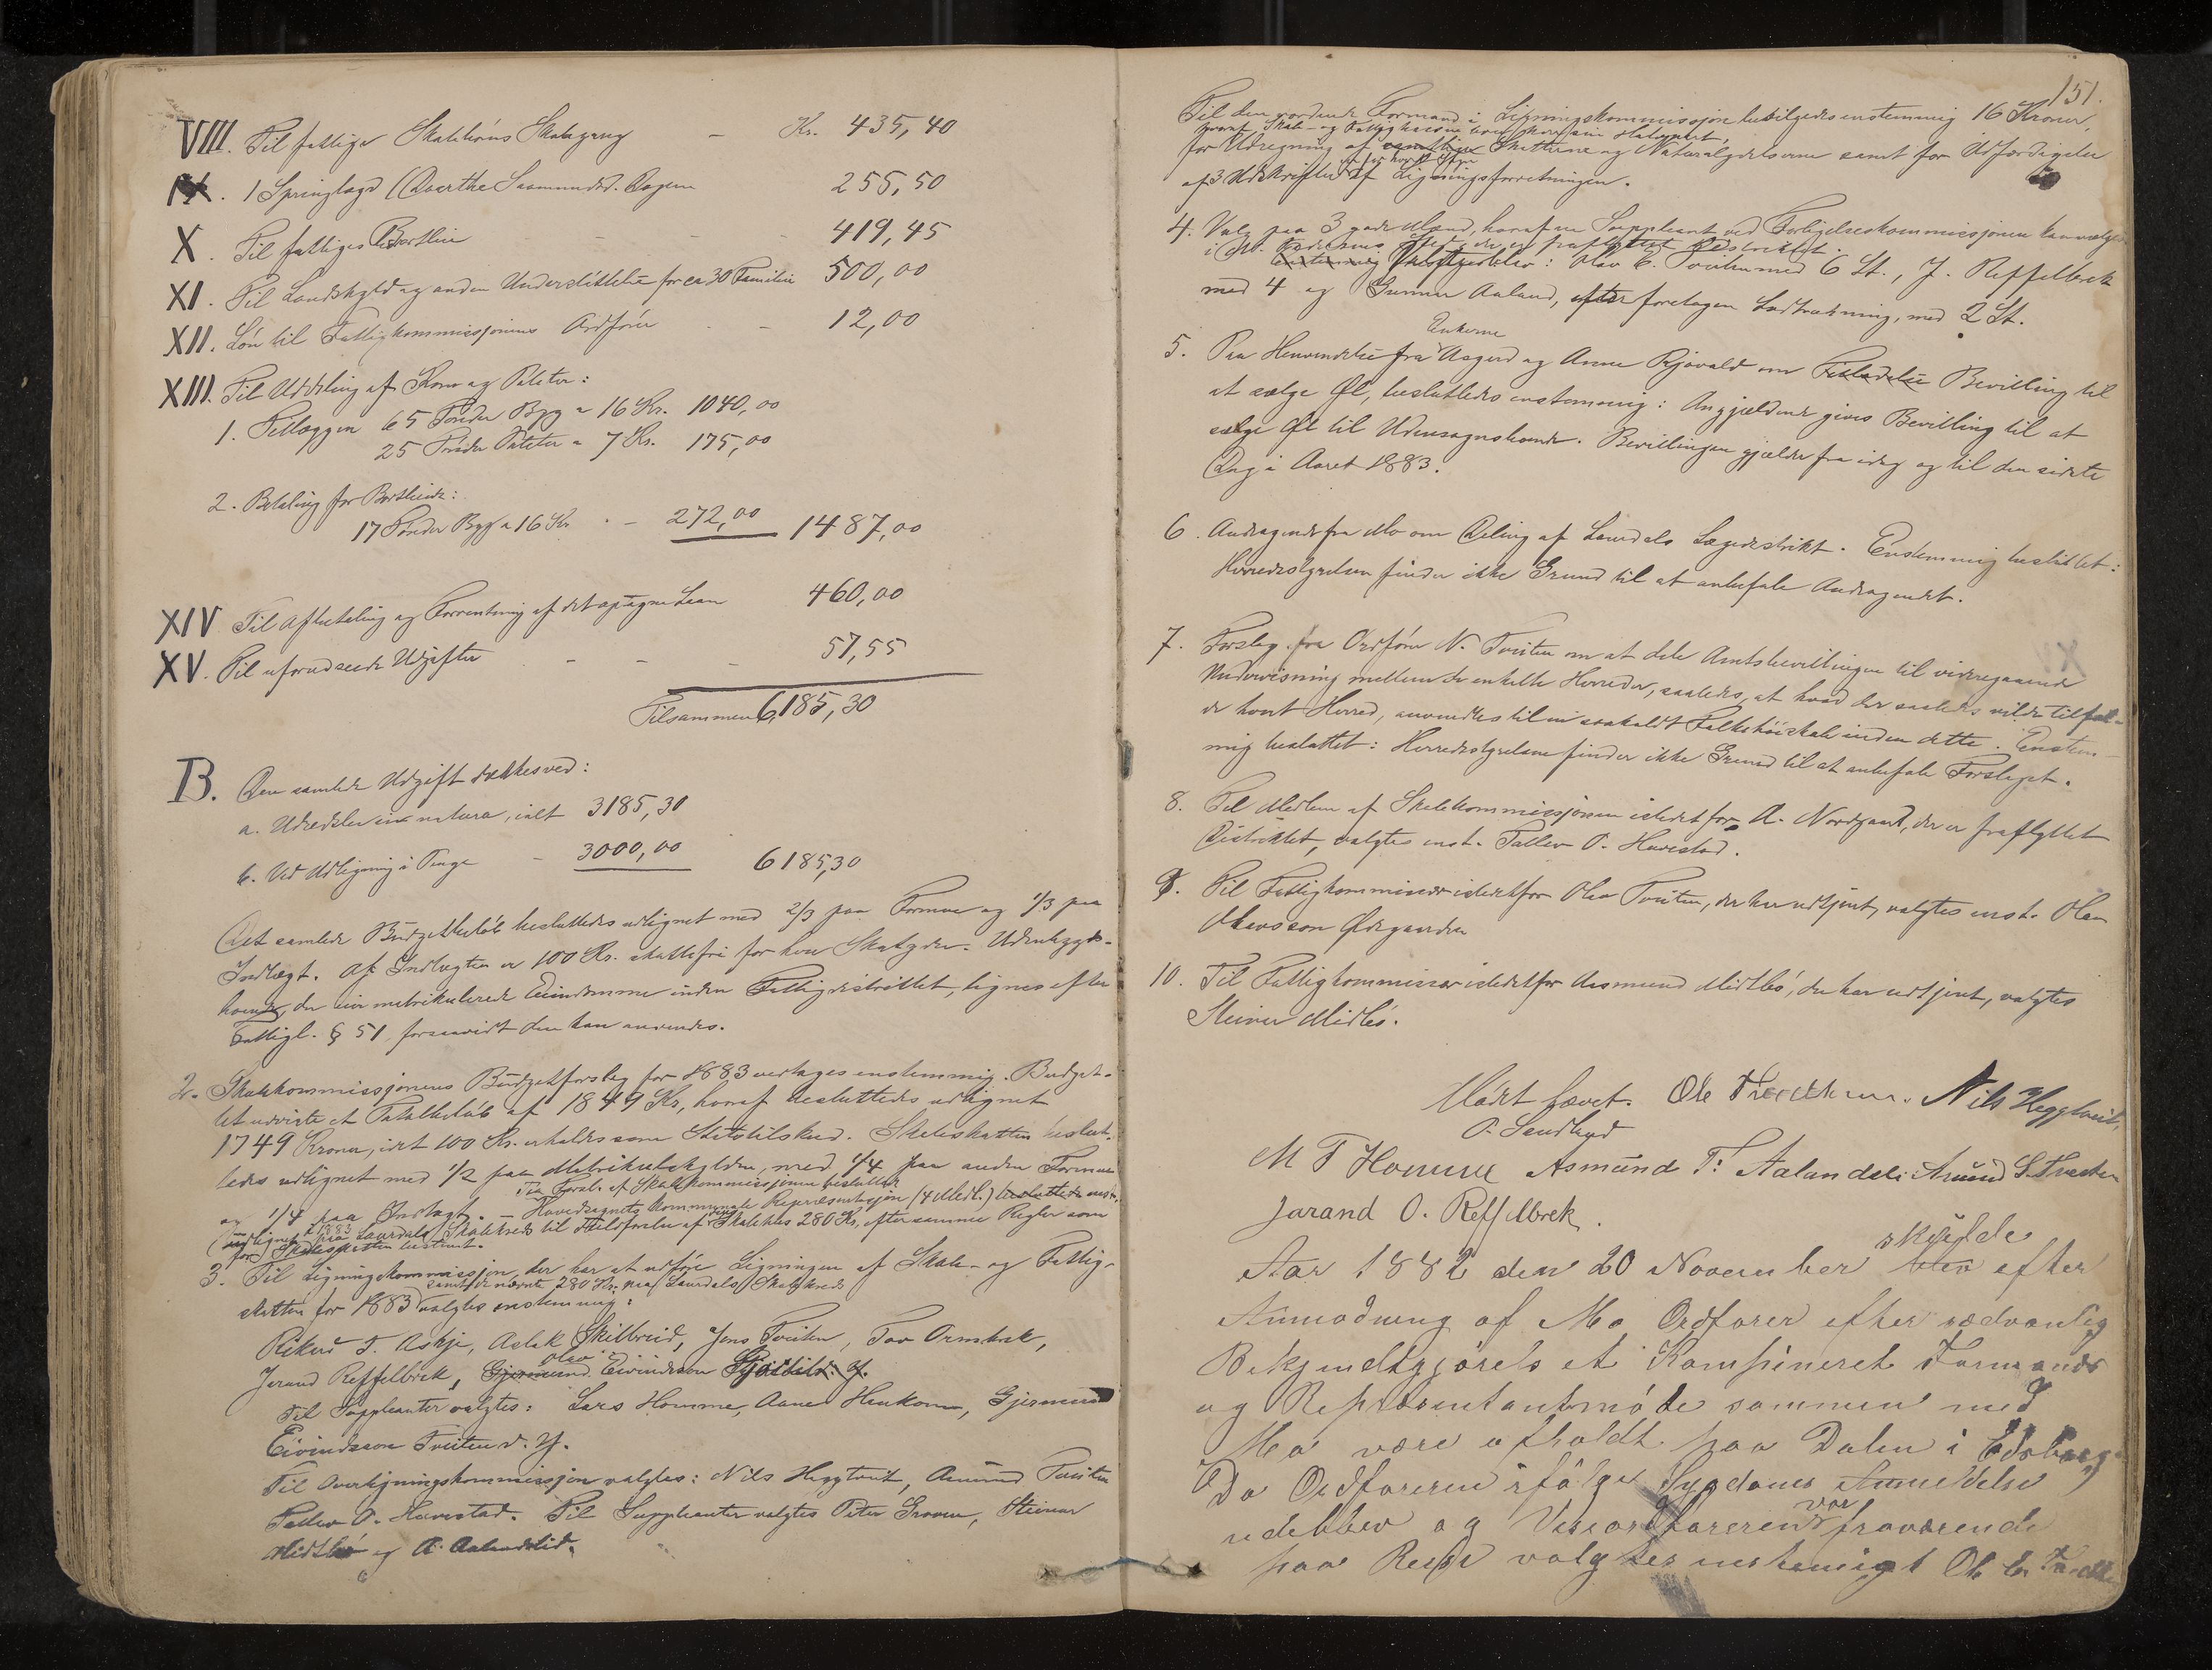 VIII. Til fattiges Skolebørns Skolegang – Kr. 435,40
IX. 1 Springlægd (Dorthe Saamundsd. Aagen 255,50
X. Til fattiges Bortleie – – – 419,45
XI. Til Landskyld og anden Understøttelse for ca 30 Familier 500,00
XII. Løn til Fattigkommissjonens Ordfører – – 12,00
XIII. Til Uddeling af Korn og Poteter:
1. Tillæggen 65 Tønder Byg a 16 Kr. 1040,00
25 Tønder Poteter a 7 Kr. 175,00
2. Betaling for Bortleiede:
17 Tønder Byg a 16 Kr. – 272,00 1487,00
XIV Til Afbetaling og Forrentning af det optagne Laan 460,00
XV. Til uforudseede Udgifter – – – 57,55
Tilsammen 6,185,30
B. Den samlede Udgift dækkes ved:
a. Udredsler in natura, ialt 3185,30
b. Ved Udligning i Penge – 3000,00 6185,30
Det samlede Budgetbeløb besluttedes udlignet med 2/3 paa Formue og 1/3 paa
Indtægt. Af Indtægten er 100 Kr. skattefri for hver Skatyder. Udenbygds-
boende, der eier matrikulerede Eiendomme inden Fattigdistriktet, lignes efter
Fattigl. § 51 forsaavidt den kan anvendes.
2. Skolekommissjonens Budgetforslag for 1883 vedtages enstemmig. Budget-
tet udviste et Totalbeløb af 1849 Kr, hvoraf besluttedes udlignet
1749 Kroner, idet 100 Kr. erholdes som Statstilskud. Skoleskatten beslut-
tedes udlignet med 1/2 paa Matrikulskylden, med 1/4 paa anden Formue
og 1/4 paa Indtægt. – Paa Forsl. af Skolekommissjonen beslutter
Hovedsognets kommunale Repræsentasjon (4 Medl.) besluttede enst.
udlignet i 1883 paa Laurdals Skolekreds til Istandførelse af Skolehus 280 Kr, efter samme Regler som
for Skoleskatten bestemt.
3. Til Ligningskommissjon, der har at udføre Ligningen af Skole- og Fattig-
samt de nævnte 280 Kr. paa Laurdals Skolekreds
skatten for 1883 valgtes enstemmig:
Rikard T. Askje, Aslak Skilbreid, Jens Tveiten, Tov Ormbrek,
Jarand Reffelbrek, Gjermund Olav Eivindsson
Til Suppleanter valgtes: Lars Homme, Aane Haukom, Gjermund
Eivindsson Tveiten d. y.
Til Overligningskommissjon valgtes: Nils Heggtveit, Amund Tveiten
Tallev O. Huvestad. Til Suppleanter valgtes Peter Groven, Steinar
Midtbø og A. Aalandslid.
151.
Til den vordende Formand i Ligningskommissjonen bevilgedes enstemmig 16 Kroner,
for Udregning af Skatterne og Naturalydelserne samt for Udfærdigelse
af 3 Udskrifter af Ligningsforretningen.
4. Valg paa 3 gode Mænd, hvoraf en Suppleant ved Forligelseskommissjonen kan vælges
i N. Sted, der er fraflyttet Distriktet.
Valgtes blev: Olav E. Tveiten med 6 St., J. Reffelbrek
med 4 og Gunnar Aaland, efter foretagen Lodtrækning, med 2 St.
5. Paa Henvendelse fra Enkerne Aagerd og Anne Rjovald om Tilladelse Bevilling til
at sælge Øl, besluttedes enstemmig: Angjældende gives Bevilling til at
sælge Øl til Udensognsboende. Bevillingen gjælder fra idag og til den sidste
Dag i Aaret 1883.
6. Andragende fra Mo om Deling af Laurdals Lægedistrikt. Enstemmig besluttet:
Herredsstyrelsen finder ikke Grund til at anbefale Andragendet.
7. Forslag fra Ordfører N. Tveiten om at dele Amtsbevillingen til videregaaende
Undervisning mellem de enkelte Herreder, saaledes, at hvad der saaledes vilde tilfal-
de hvert Herred, anvendtes til en saakaldt Folkehøiskole inden dette. Enstem-
mig besluttet: Herredsstyrelsen finder ikke Grund til at anbefale Forslaget.
8. Til Medlem af Skolekommissjonen istedetfor A. Nordgaard, der er fraflyttet
Distriktet, valgtes enst. Tallev O. Huvestad.
9. Til Fattigkommissær istedetfor Olav Tveiten, der har udtjent, valgtes enst. Olav
Olavsson Ødegaarden
10. Til Fattigkommissær istedetfor Aasmund Midtbø, der har udtjent, valgtes
Steinar Midtbø.
Mødet hævet. Ole Nils Heggtveit,
O. Sundbyd
M T Homme Asmund T. Aalandslie Amund S. Tveiten
Jarand O. Reffelbrek.
Aar 1882 den 20 November skulde blev efter
Anmodning af Mo Ordfører efter sædvanlig
Bekjendtgjørels et Kombineret Formands
og Repræsentantmøde sammen med
Mo være afholdt paa Dalen i Eidsborg.
Da Ordføreren ifølge Sygdoms Anmeldelse
udeblev og Viseordføreren var fraværende
paa Reise valgtes enstemigt Ole